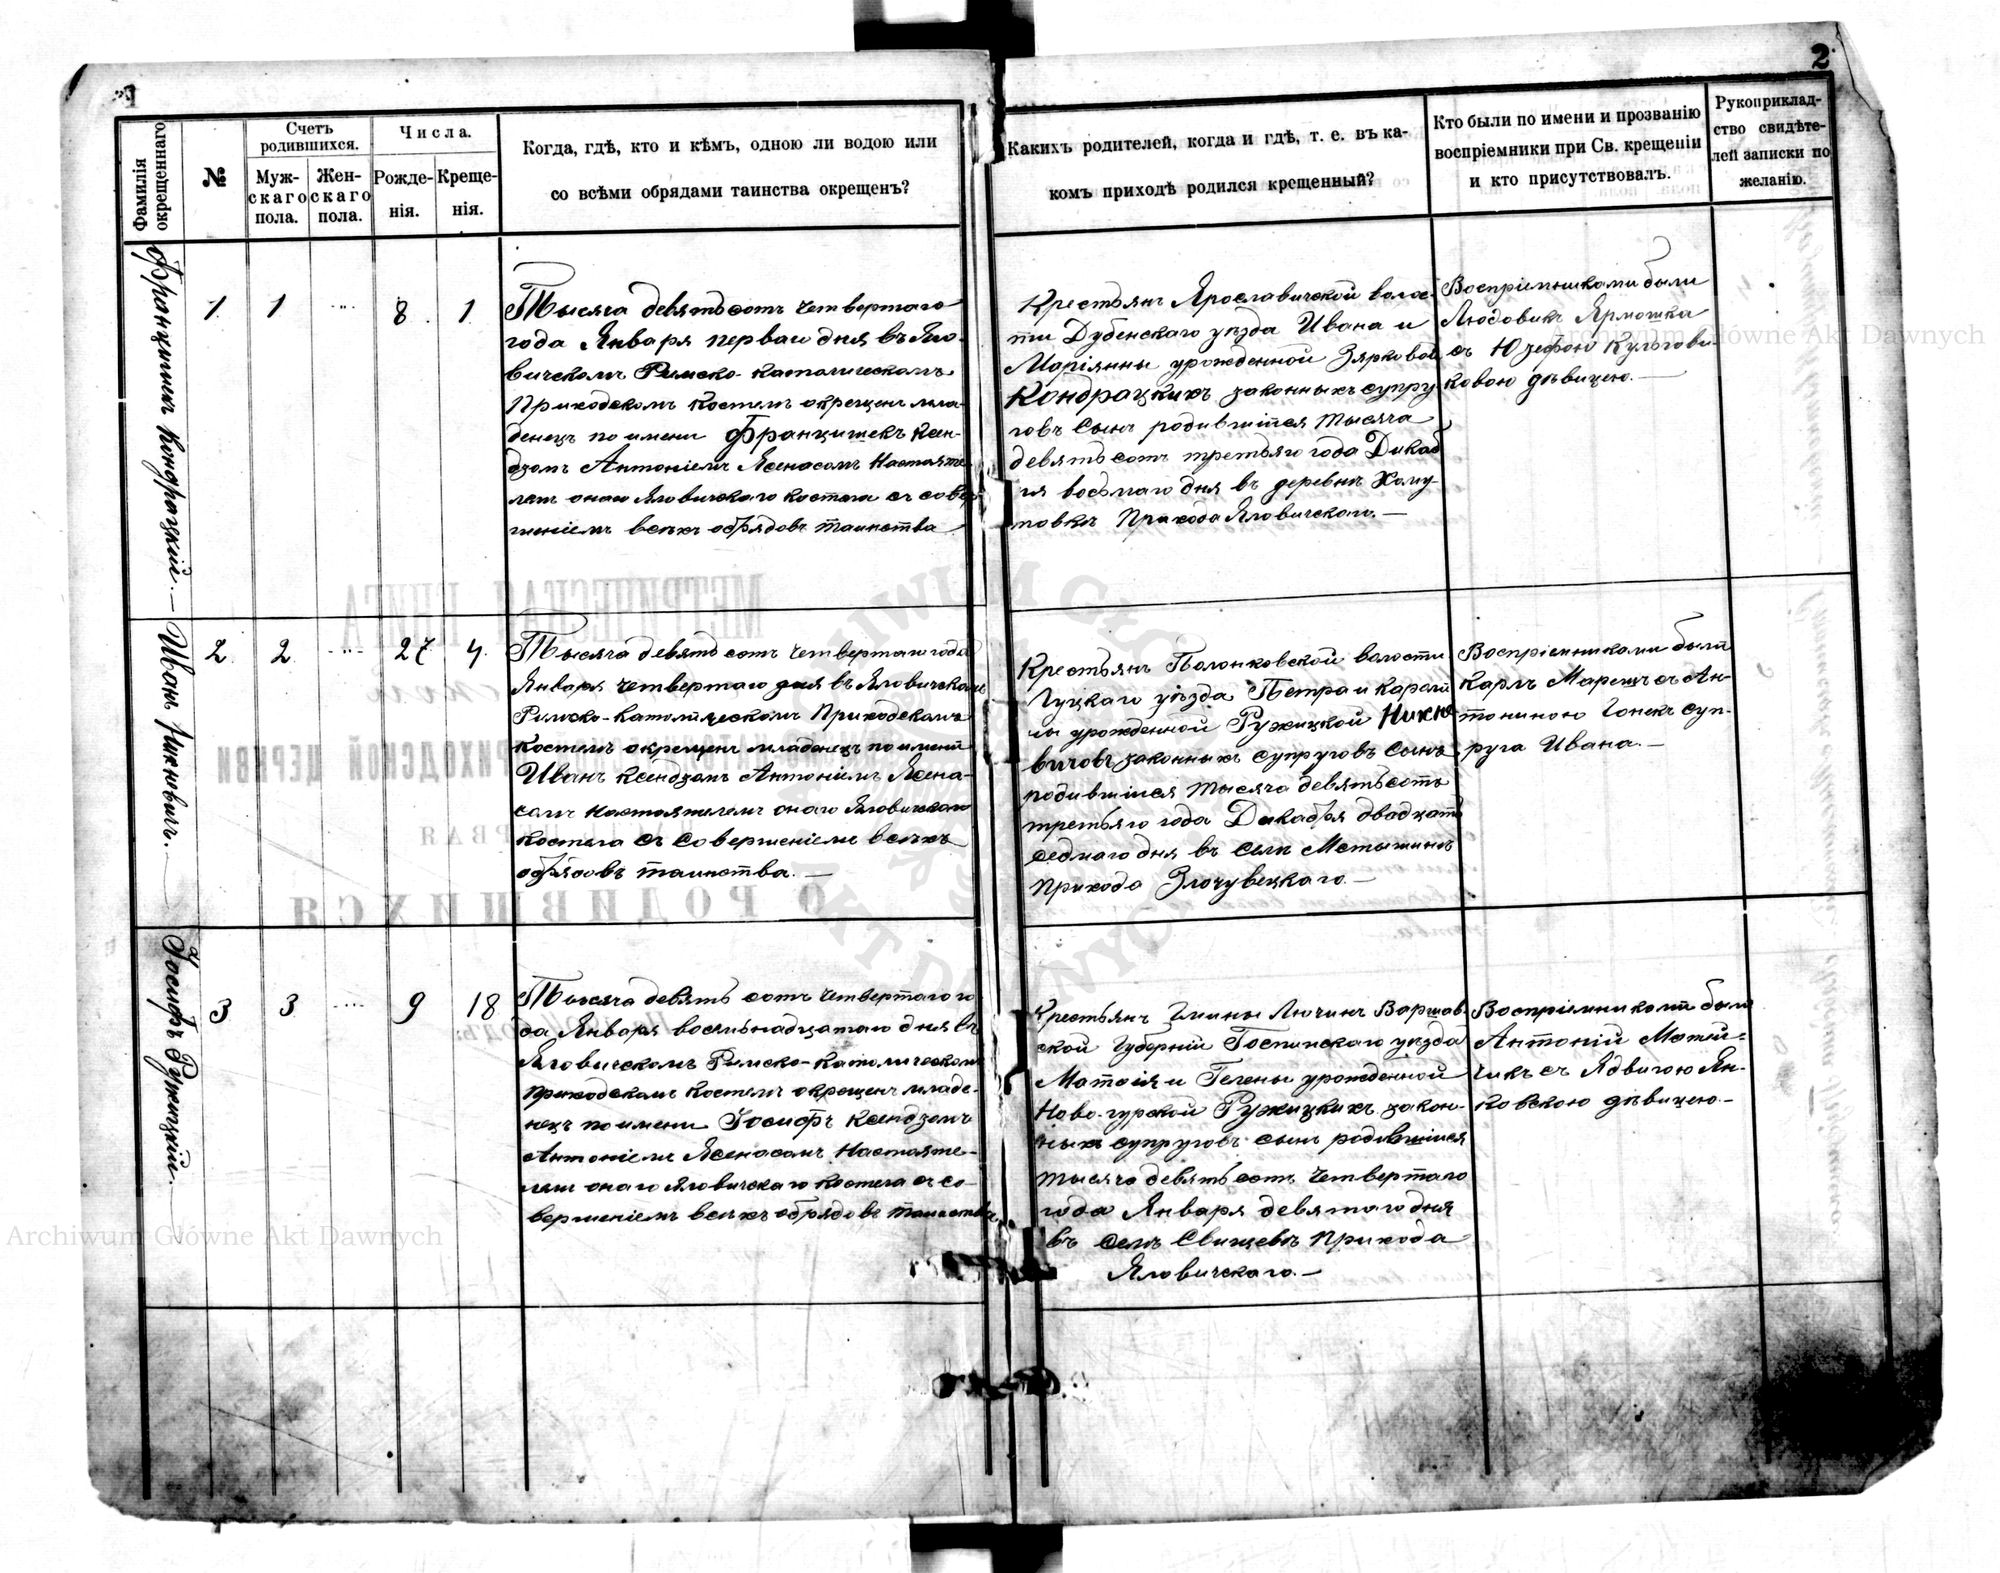 1
2
Фамилія окрещеннаго
№
Счетъ родившихся.
Муж-скаго пола.
Жен-скаго пола.
Числа.
Рожде-нія.
Креще-нія.
Когда, гдѣ, кто и кѣмъ, одною ли водою или
со всѣми обрядами таинства окрещенъ?
Какихъ родителей, когда и гдѣ, т. е. въ ка-
комъ приходѣ родился крещенный?
Кто были по имени и прозванію
воспріемники при Св. крещеніи
и кто присутствовалъ.
Рукоприклад-
ство свидѣте-
лей записки по
желанію.
Францишекъ Кондрацкій. —
1 1 8 1
Тысяча девятьсотъ четвертаго
года Января перваго дня въ Яло-
вичскомъ Римско-католическомъ
Приходскомъ Костелѣ окрещенъ мла-
денецъ по имени Францишекъ Ксен-
дзомъ Антоніемъ Ясенасомъ Настояте-
лемъ онаго Яловичскаго костела съ совер-
шеніемъ всѣхъ обрядовъ таинства
Крестьянъ Ярославичской волос-
ти Дубенскаго уѣзда Ивана и
Маріянны урожденной Зярковой
Кондрацкихъ законныхъ супру-
говъ сынъ родившійся тысяча
девятьсотъ третьяго года Декаб-
ря восьмаго дня въ деревнѣ Хому-
товкѣ Прихода Яловичскаго. —
Воспріемниками были
Людовикъ Ярмошка
съ Юзефою Кульгови-
ковою дѣвицею. —
Иванъ Никновичъ.
2 2 27 4
Тысяча девятьсотъ четвертаго года
Января четвертаго дня въ Яловичскомъ
Римско-католическомъ Приходскомъ
костелѣ окрещенъ младенецъ по имени
Иванъ Ксендзомъ Антоніемъ Ясена-
сомъ Настоятелемъ онаго Яловичскаго
костела съ совершеніемъ всѣхъ
обрядовъ таинства. —
Крестьянъ Полонковской волости
Луцкаго уѣзда Петра и Кароли-
ны урожденной Ружицкой Никно-
вичовъ законныхъ супруговъ сынъ
родившійся тысяча девятьсотъ
третьяго года Декабря двадцать
седмаго дня въ селѣ
Прихода
Воспріемниками были
Карлъ Марецъ съ Ан-
тониною Гонекъ суп-
руга Ивана. —
Іосифъ Ружицкій.
3 3 9 18
Тысяча девятьсотъ четвертаго го-
да Января восемьнадцатаго дня въ
Яловичскомъ Римско-католическомъ
приходскомъ костелѣ окрещенъ младе-
нецъ по имени Іосифъ Ксендзомъ
Антоніемъ Ясенасомъ Настояте-
лемъ онаго Яловичскаго костела съ со-
вершеніемъ всѣхъ обрядовъ таинства
Крестьянъ Гмины Варшав-
ской Губерніи уѣзда
Матвія и Гелены урожденной
Ново-гурской Ружицкихъ закон-
ныхъ супруговъ сынъ родившійся
тысяча девятьсотъ четвертаго
года Января девятаго дня
въ селѣ Свищевѣ Прихода
Яловичскаго. —
Воспріемниками были
Антоній Матей-
чикъ съ Ядвигою Ян-
ковскою дѣвицею. —
Archiwum Główne Akt Dawnych
Archiwum Główne Akt Dawnych